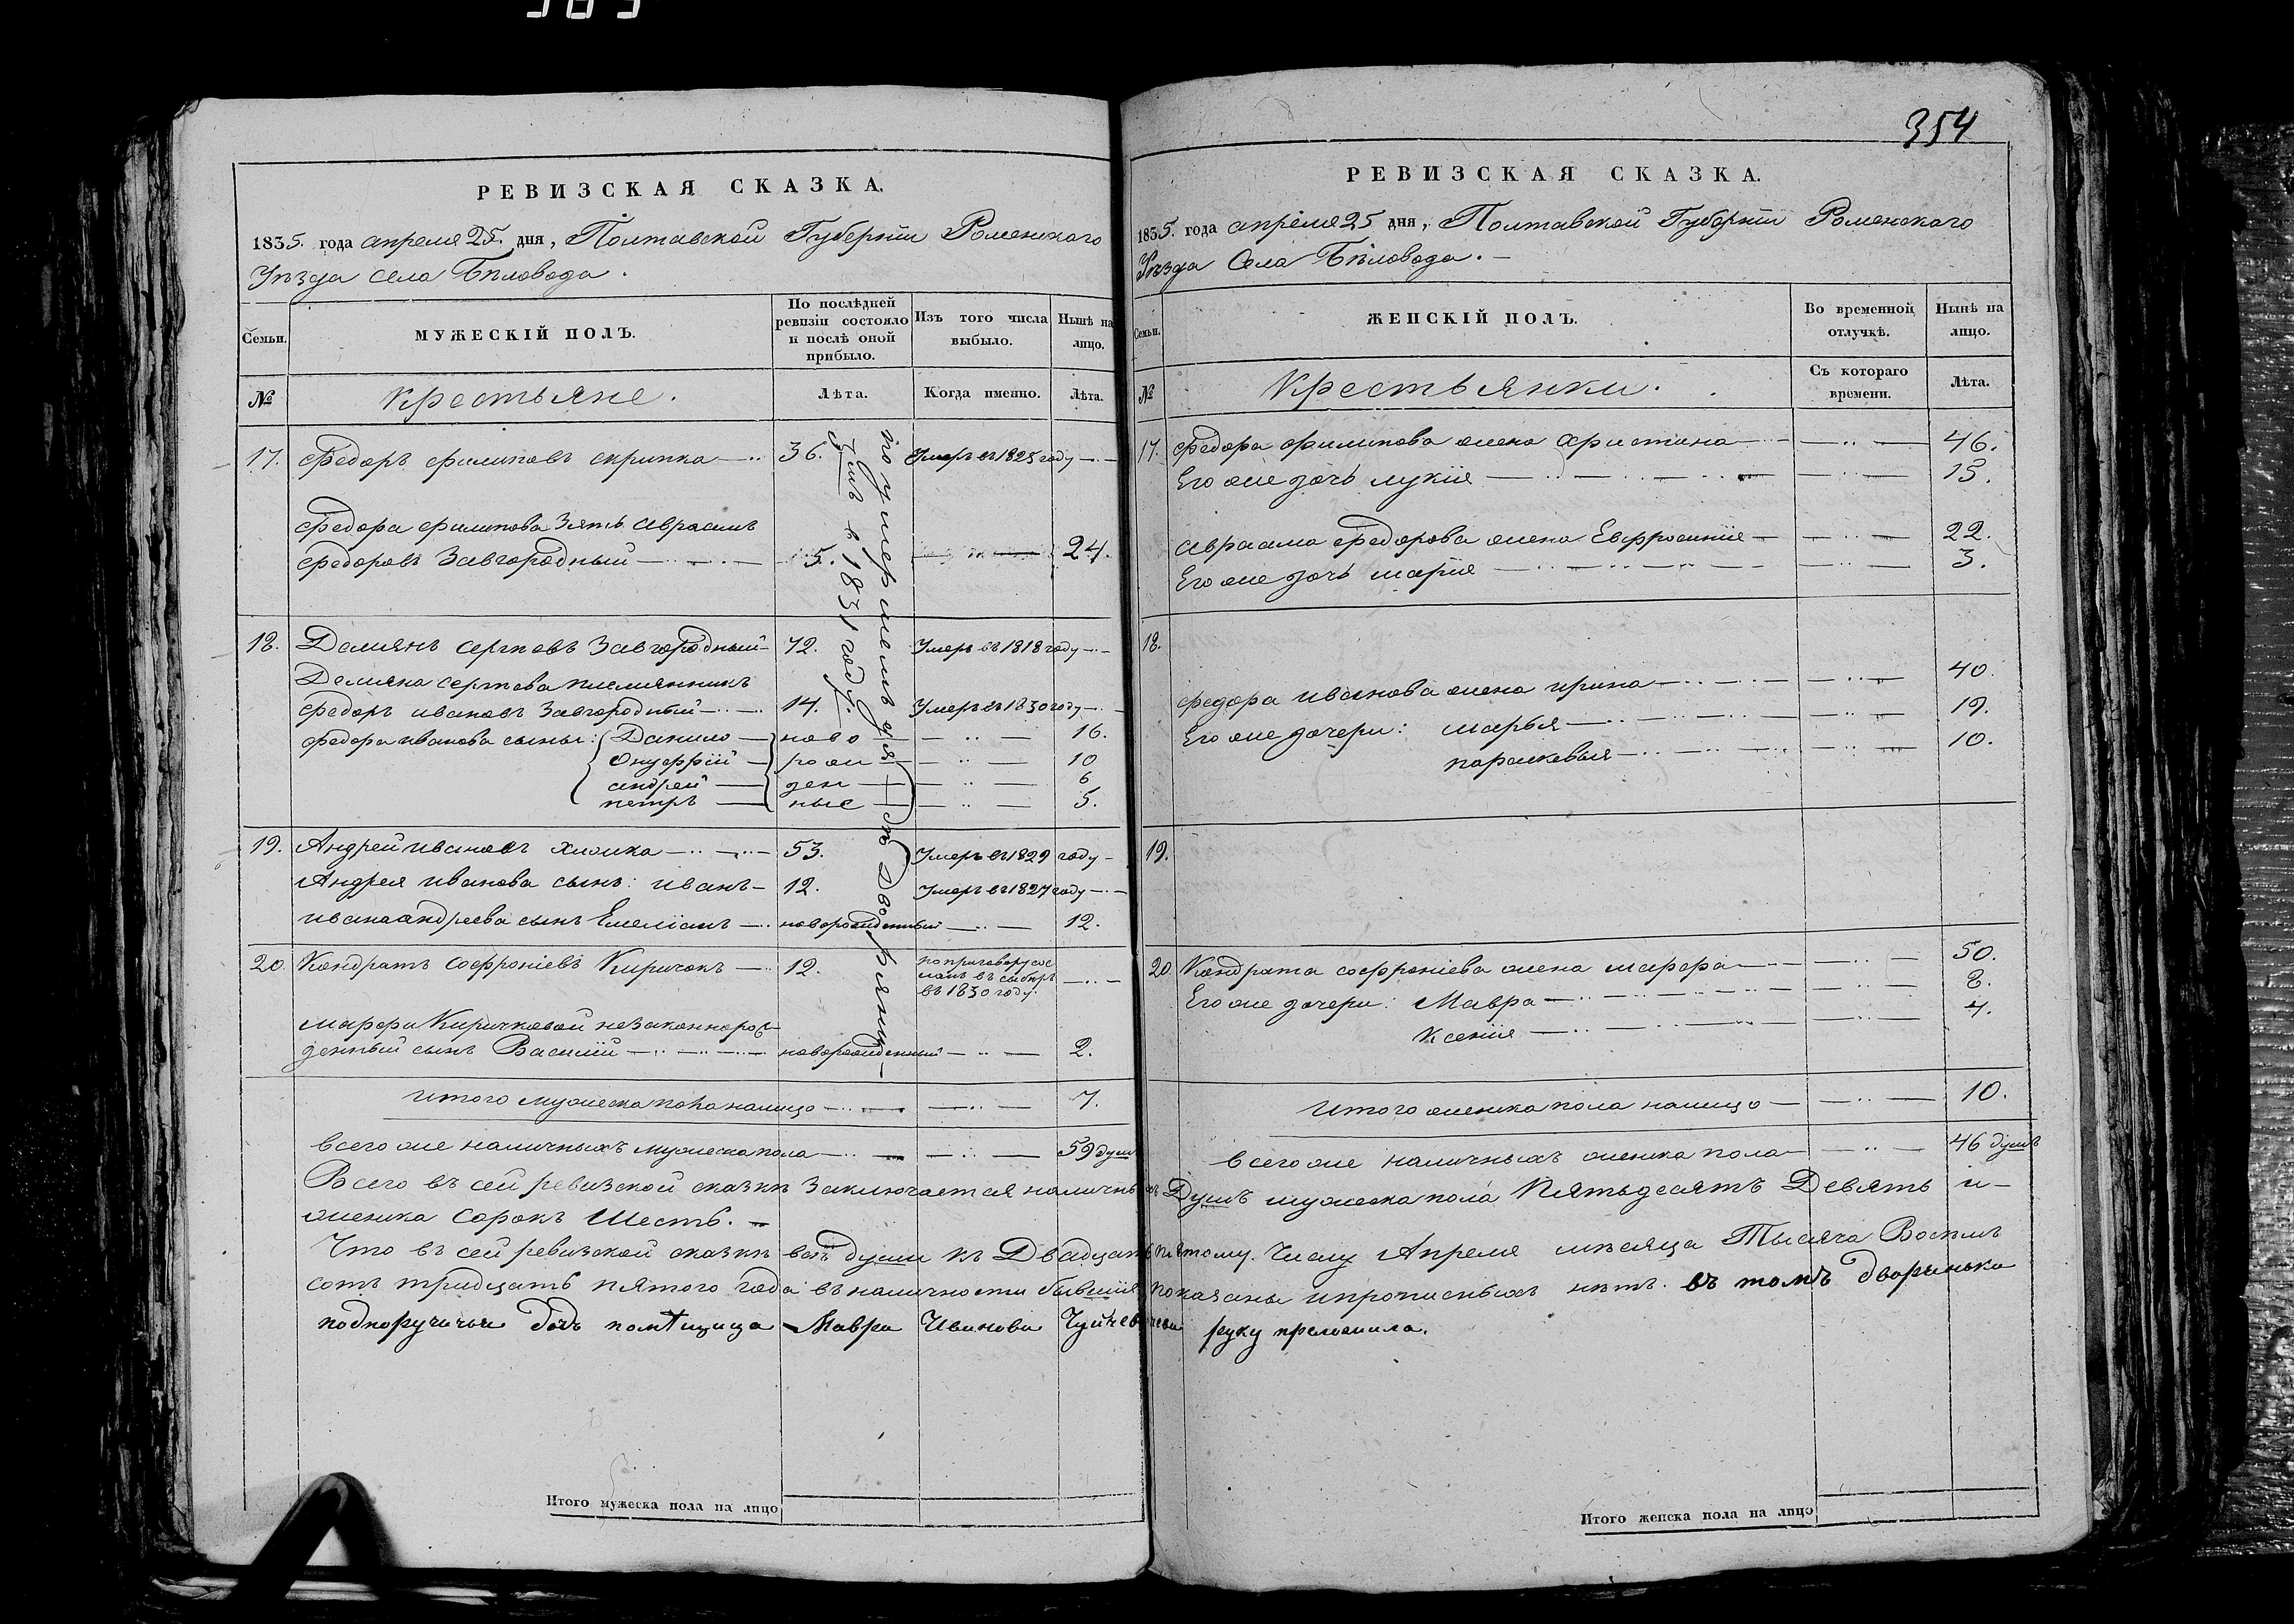 383
354
РЕВИЗСКАЯ СКАЗКА.
1835. года апреля 25. дня, Полтавской Губерніи Роменскаго
Уѣзда села Бѣловода.
Семьи.
МУЖЕСКІЙ ПОЛЪ.
По послѣдней ревизіи состояло и послѣ оной прибыло.
Изъ того числа выбыло.
Нынѣ на лицо.
№
Крестьяне.
Лѣта.
Когда именно.
Лѣта.
17. Федоръ филиповъ скрипка 36. Умеръ въ 1825 году
Федора филипова Зять авраамъ
федоровъ Завгородный 5. 24.
18. Демянъ сергѣевъ Завгородный 72. Умеръ въ 1818 году
Демяна сергѣева племянникъ
федоръ ивановъ Завгородный 14. Умеръ въ 1830 году
федора иванова сыны: Данило ново 16.
Онуфрій рож 10
андрей ден 6
петръ ные 5.
19. Андрей ивановъ хижка 53. Умеръ въ 1829 году
Андрея иванова сынъ: иванъ 12. умеръ въ 1827 году
ивана андреева сынъ Емеліанъ новорожденный 12.
20. Кондратъ софроніевъ Киричокъ 12. по приговору сос
ланъ въ сибирь
въ 1830 году.
марфы Киричковой незаконнорож
денный сынъ Василій новорожденный 2.
итого мужеска пола налицо 7.
всего же наличныхъ мужеска пола 59 душъ
РЕВИЗСКАЯ СКАЗКА.
1835. года апреля 25 дня, Полтавской Губерніи Роменскаго
Уѣзда Села Бѣловода.
Семьи.
ЖЕНСКІЙ ПОЛЪ.
Во временной отлучкѣ.
Нынѣ на лицо.
№
Крестьянки.
Съ котораго времени.
Лѣта.
17. федора филипова жена христина 46.
Его же дочь лукія 13.
авраама федорова жена Евфросинія 22.
Его же дочь марія 3.
18.
федора иванова жена ирина 40.
Его же дочери: марья 19.
параскевья 10.
19.
20. Кондрата софроніева жена марфа 50.
Его же дочери: Мавра 8.
Ксенія 4.
итого женска пола налицо 10.
всего же наличныхъ женска пола 46 душъ
Всего въ сей ревизской сказкѣ Заключается наличныхъ Душъ мужеска пола Пятьдесятъ Девять и
женска Сорокъ Шесть.
Что въ сей ревизской сказкѣ всѣ души къ Двадцать пятому числу Апреля мѣсяца Тысяча Восѣмъ
сотъ тридцать пятого года въ наличности бывшія показаны и прописныхъ нѣтъ. въ томъ дворянька
подпоручичья дочь помѣщица Мавра Иванова руку приложила.